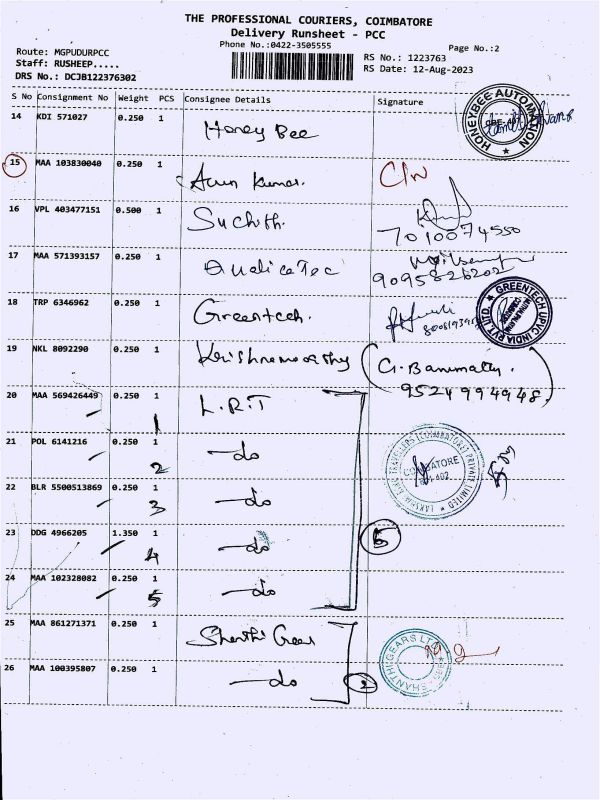 THE PROFESSIONAL COURIERS, COIMBATORE
Delivery Runsheet - PCC
Phone No.:0422-3505555
Page No.:2
Route: MGPUDURPCC
Staff: RUSHEEP.....
DRS No.: DCJB122376302
RS No.: 1223763
RS Date: 12-Aug-2023
S No Consignment No Weight PCS Consignee Details Signature
14 KDI 571027 0.250 1 Honey Bee
HONEYBEE AUTOMATION
15 MAA 103830040 0.250 1 Arun Kumar. C/N
16 VPL 403477151 0.500 1 Suchith.
7010074550
17 MAA 571393157 0.250 1
9095826202
18 TRP 6346962 0.250 1 Greentech.
GREENTECH UPVC INDIA PVT. LTD.
19 NKL 8092290 0.250 1 Krishnamoorthy G. Banumathy.
9524994948.
20 MAA 569426449 0.250 1 L.R.T
1
21 POL 6141216 0.250 1 do
2
COIMBATORE
641 402
22 BLR 5500513869 0.250 1 do
3
23 DDG 4966205 1.350 1 do
4
5
24 MAA 102328082 0.250 1 do
5
25 MAA 861271371 0.250 1 Shanthi Gears
SHANTHI GEARS LTD
26 MAA 100395807 0.250 1 do
2